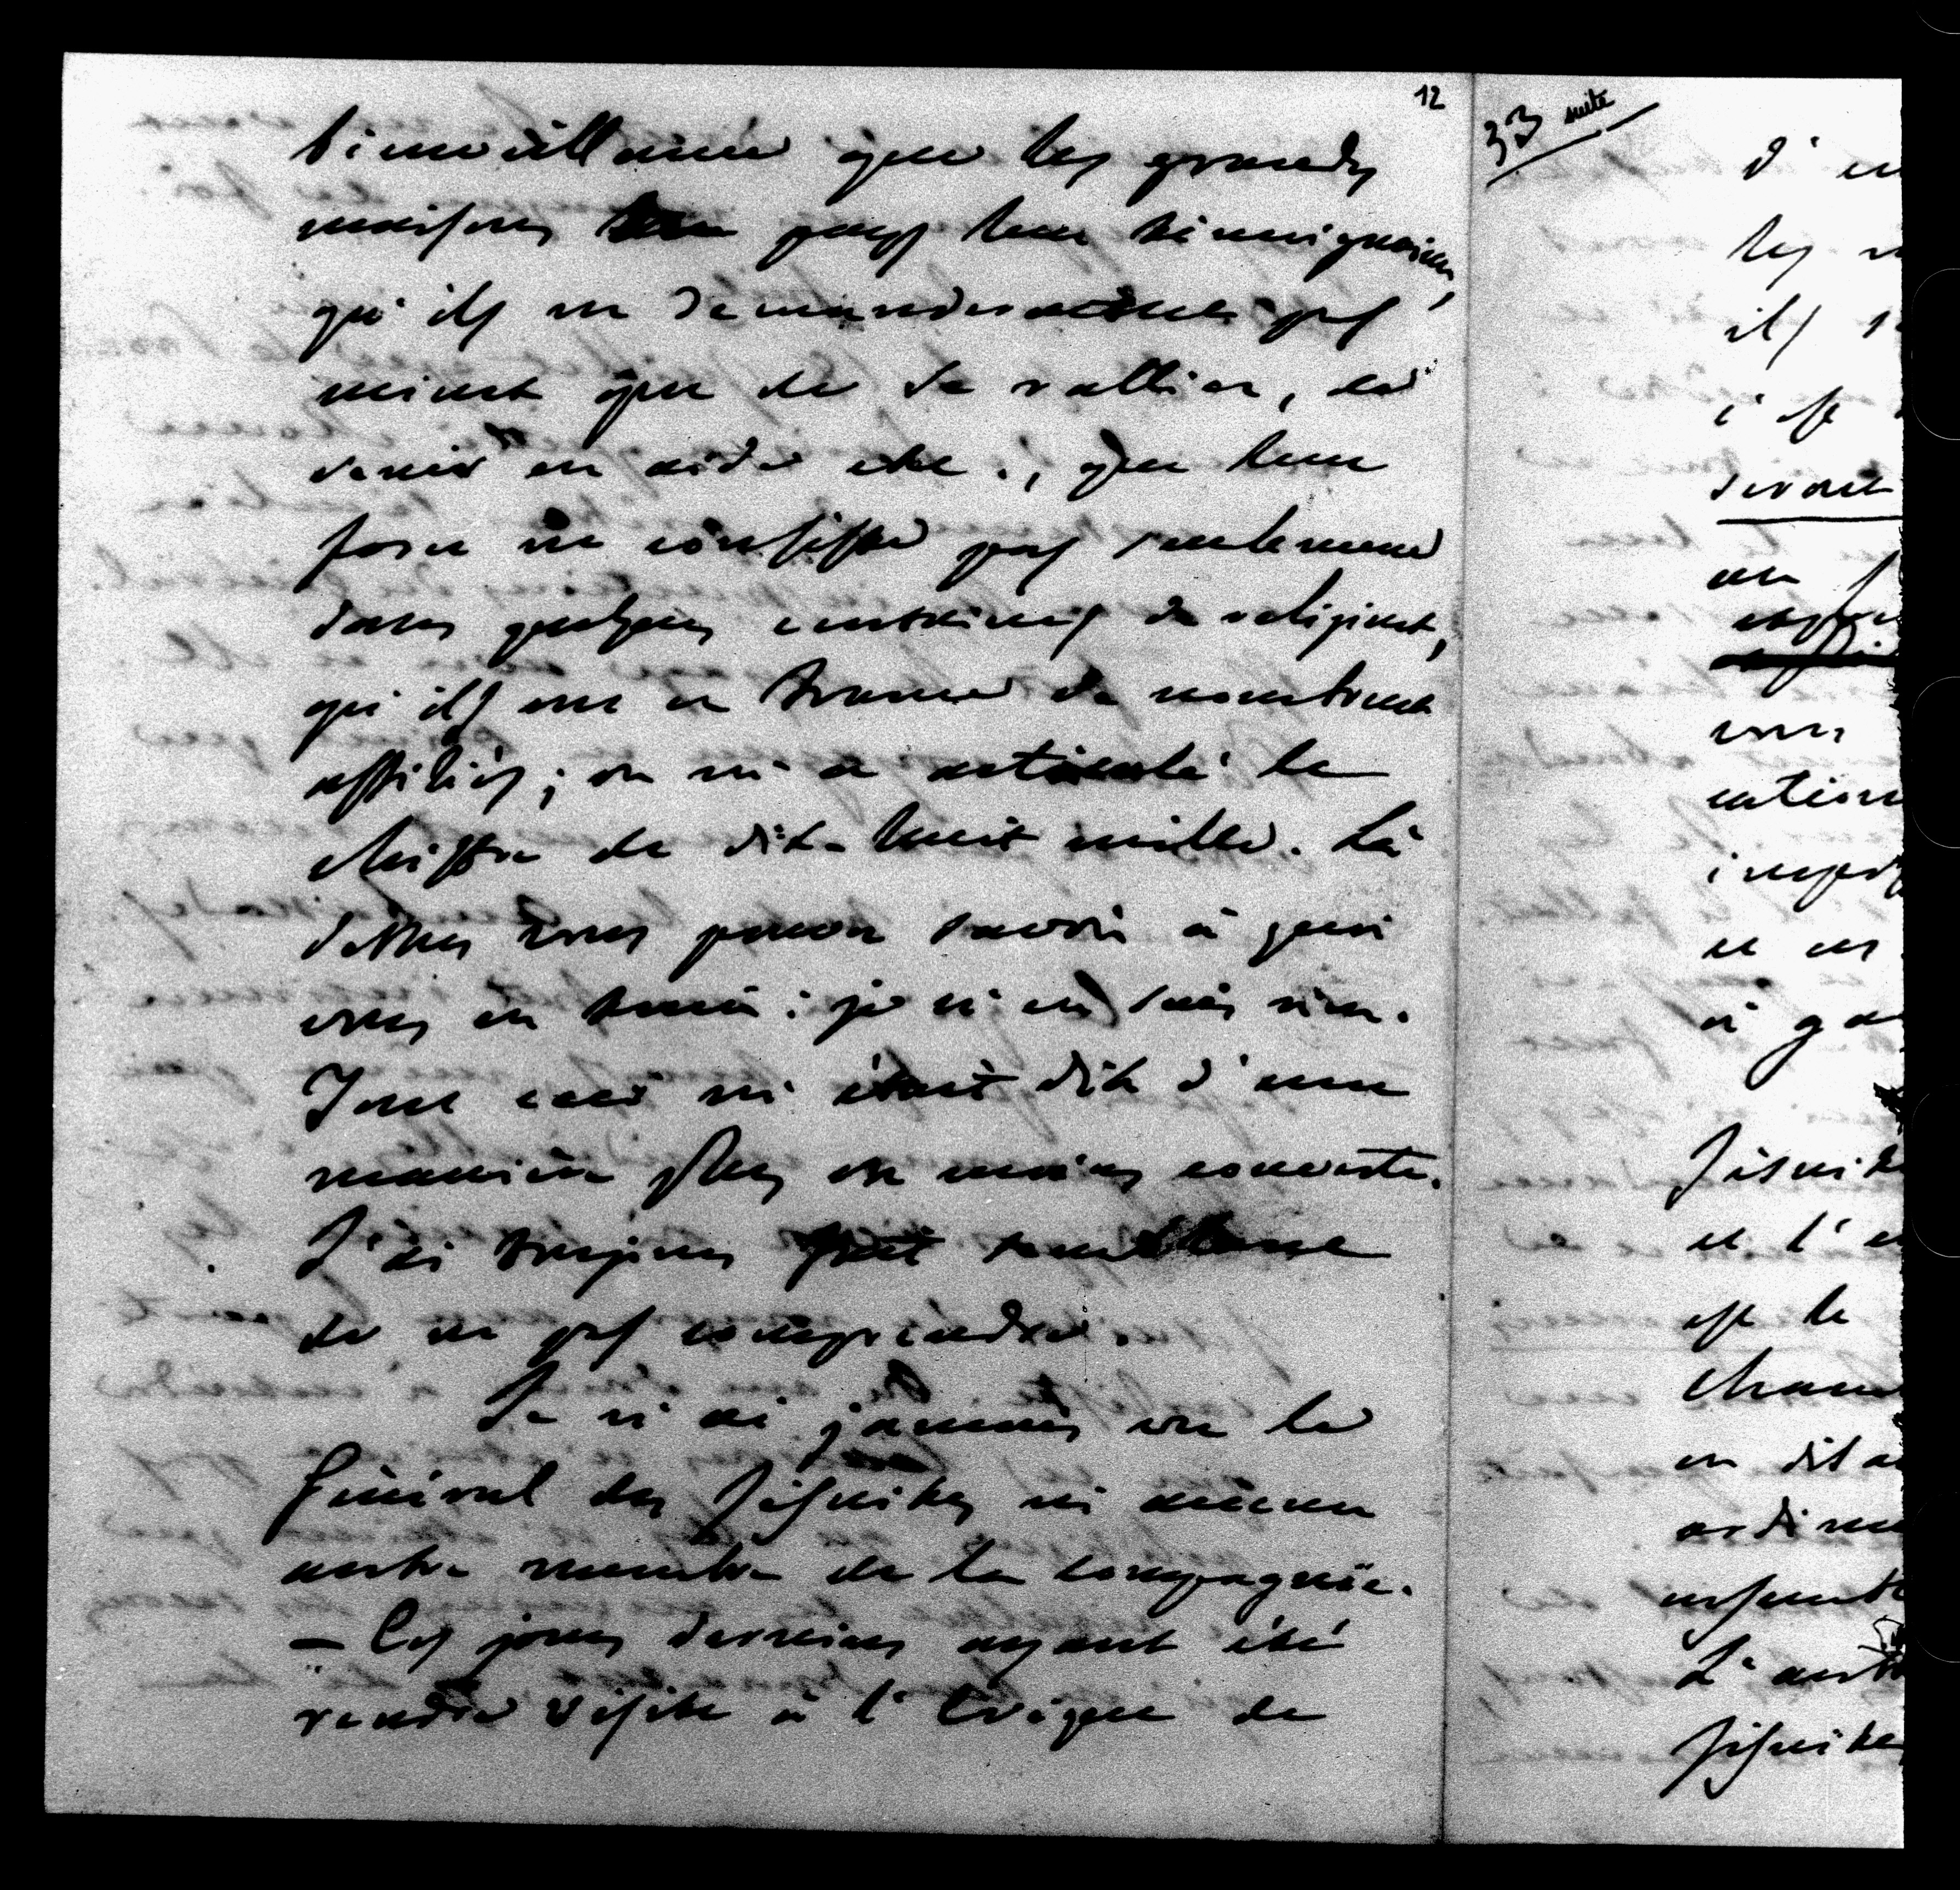 12
bienveillance que les grandes
maisons leur témoignaient,
qu'ils ne demanderaient pas
mieux que de se rallier, de
venir en aide etc., que leur
force ne consiste pas seulement
dans quelques centaines de religieux,
qu'ils ont en France de nombreux
affiliés; on m'a articulé le
chiffre de dix-huit mille. Là
dessus vous pouvez savoir à quoi
vous en tenir: je n'en sais rien.
Tout ceci m'était dit d'une
manière plus ou moins couverte.
J'ai toujours fait semblant
de ne pas comprendre.
Je n'ai jamais vu le
Général des Jésuites ni aucun
autre membre de la compagnie.
— Ces jours derniers ayant été
rendre visite à l'Evêque de
33 suite
d'en
les
ils
c'est
devant
vous
et en
à ga
Jésuite
et l'
est le
Jésuites